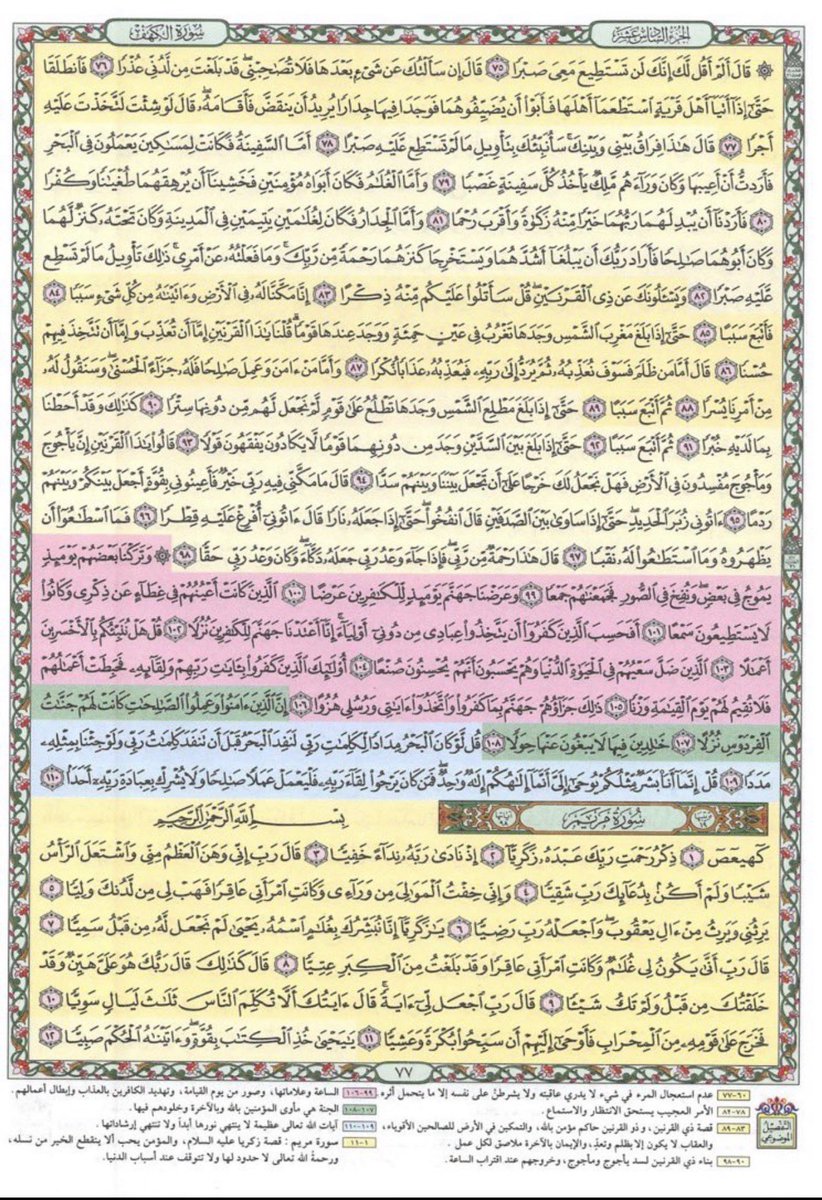 الجزء السادس عشر
سورة الكهف
۞ قَالَ أَلَمْ أَقُل لَّكَ إِنَّكَ لَن تَسْتَطِيعَ مَعِىَ صَبْرًا ٧٥ قَالَ إِن سَأَلْتُكَ عَن شَىْءٍ بَعْدَهَا فَلَا تُصَٰحِبْنِى قَدْ بَلَغْتَ مِن لَّدُنِّى عُذْرًا ٧٦ فَٱنطَلَقَا
حَتَّىٰٓ إِذَآ أَتَيَآ أَهْلَ قَرْيَةٍ ٱسْتَطْعَمَآ أَهْلَهَا فَأَبَوْا۟ أَن يُضَيِّفُوهُمَا فَوَجَدَا فِيهَا جِدَارًا يُرِيدُ أَن يَنقَضَّ فَأَقَامَهُۥ قَالَ لَوْ شِئْتَ لَتَّخَذْتَ عَلَيْهِ
أَجْرًا ٧٧ قَالَ هَٰذَا فِرَاقُ بَيْنِى وَبَيْنِكَ سَأُنَبِّئُكَ بِتَأْوِيلِ مَا لَمْ تَسْتَطِع عَّلَيْهِ صَبْرًا ٧٨ أَمَّا ٱلسَّفِينَةُ فَكَانَتْ لِمَسَٰكِينَ يَعْمَلُونَ فِى ٱلْبَحْرِ
فَأَرَدتُّ أَنْ أَعِيبَهَا وَكَانَ وَرَآءَهُم مَّلِكٌ يَأْخُذُ كُلَّ سَفِينَةٍ غَصْبًا ٧٩ وَأَمَّا ٱلْغُلَٰمُ فَكَانَ أَبَوَاهُ مُؤْمِنَيْنِ فَخَشِينَآ أَن يُرْهِقَهُمَا طُغْيَٰنًا وَكُفْرًا
٨٠ فَأَرَدْنَآ أَن يُبْدِلَهُمَا رَبُّهُمَا خَيْرًا مِّنْهُ زَكَوٰةً وَأَقْرَبَ رُحْمًا ٨١ وَأَمَّا ٱلْجِدَارُ فَكَانَ لِغُلَٰمَيْنِ يَتِيمَيْنِ فِى ٱلْمَدِينَةِ وَكَانَ تَحْتَهُۥ كَنزٌ لَّهُمَا
وَكَانَ أَبُوهُمَا صَٰلِحًا فَأَرَادَ رَبُّكَ أَن يَبْلُغَآ أَشُدَّهُمَا وَيَسْتَخْرِجَا كَنزَهُمَا رَحْمَةً مِّن رَّبِّكَ وَمَا فَعَلْتُهُۥ عَنْ أَمْرِى ذَٰلِكَ تَأْوِيلُ مَا لَمْ تَسْطِع
عَّلَيْهِ صَبْرًا ٨٢ وَيَسْـَٔلُونَكَ عَن ذِى ٱلْقَرْنَيْنِ قُلْ سَأَتْلُوا۟ عَلَيْكُم مِّنْهُ ذِكْرًا ٨٣ إِنَّا مَكَّنَّا لَهُۥ فِى ٱلْأَرْضِ وَءَاتَيْنَٰهُ مِن كُلِّ شَىْءٍ سَبَبًا ٨٤
فَأَتْبَعَ سَبَبًا ٨٥ حَتَّىٰٓ إِذَا بَلَغَ مَغْرِبَ ٱلشَّمْسِ وَجَدَهَا تَغْرُبُ فِى عَيْنٍ حَمِئَةٍ وَوَجَدَ عِندَهَا قَوْمًا قُلْنَا يَٰذَا ٱلْقَرْنَيْنِ إِمَّآ أَن تُعَذِّبَ وَإِمَّآ أَن تَتَّخِذَ فِيهِمْ
حُسْنًا ٨٦ قَالَ أَمَّا مَن ظَلَمَ فَسَوْفَ نُعَذِّبُهُۥ ثُمَّ يُرَدُّ إِلَىٰ رَبِّهِۦ فَيُعَذِّبُهُۥ عَذَابًا نُّكْرًا ٨٧ وَأَمَّا مَنْ ءَامَنَ وَعَمِلَ صَٰلِحًا فَلَهُۥ جَزَآءً ٱلْحُسْنَىٰ وَسَنَقُولُ لَهُۥ
مِنْ أَمْرِنَا يُسْرًا ٨٨ ثُمَّ أَتْبَعَ سَبَبًا ٨٩ حَتَّىٰٓ إِذَا بَلَغَ مَطْلِعَ ٱلشَّمْسِ وَجَدَهَا تَطْلُعُ عَلَىٰ قَوْمٍ لَّمْ نَجْعَل لَّهُم مِّن دُونِهَا سِتْرًا ٩٠ كَذَٰلِكَ وَقَدْ أَحَطْنَا
بِمَا لَدَيْهِ خُبْرًا ٩١ ثُمَّ أَتْبَعَ سَبَبًا ٩٢ حَتَّىٰٓ إِذَا بَلَغَ بَيْنَ ٱلسَّدَّيْنِ وَجَدَ مِن دُونِهِمَا قَوْمًا لَّا يَكَادُونَ يَفْقَهُونَ قَوْلًا ٩٣ قَالُوا۟ يَٰذَا ٱلْقَرْنَيْنِ إِنَّ يَأْجُوجَ
وَمَأْجُوجَ مُفْسِدُونَ فِى ٱلْأَرْضِ فَهَلْ نَجْعَلُ لَكَ خَرْجًا عَلَىٰٓ أَن تَجْعَلَ بَيْنَنَا وَبَيْنَهُمْ سَدًّا ٩٤ قَالَ مَا مَكَّنِّى فِيهِ رَبِّى خَيْرٌ فَأَعِينُونِى بِقُوَّةٍ أَجْعَلْ بَيْنَكُمْ وَبَيْنَهُمْ
رَدْمًا ٩٥ ءَاتُونِى زُبَرَ ٱلْحَدِيدِ حَتَّىٰٓ إِذَا سَاوَىٰ بَيْنَ ٱلصَّدَفَيْنِ قَالَ ٱنفُخُوا۟ حَتَّىٰٓ إِذَا جَعَلَهُۥ نَارًا قَالَ ءَاتُونِىٓ أُفْرِغْ عَلَيْهِ قِطْرًا ٩٦ فَمَا ٱسْطَٰعُوٓا۟ أَن
يَظْهَرُوهُ وَمَا ٱسْتَطَٰعُوا۟ لَهُۥ نَقْبًا ٩٧ قَالَ هَٰذَا رَحْمَةٌ مِّن رَّبِّى فَإِذَا جَآءَ وَعْدُ رَبِّى جَعَلَهُۥ دَكَّآءَ وَكَانَ وَعْدُ رَبِّى حَقًّا ٩٨ ۞ وَتَرَكْنَا بَعْضَهُمْ يَوْمَئِذٍ
يَمُوجُ فِى بَعْضٍ وَنُفِخَ فِى ٱلصُّورِ فَجَمَعْنَٰهُمْ جَمْعًا ٩٩ وَعَرَضْنَا جَهَنَّمَ يَوْمَئِذٍ لِّلْكَٰفِرِينَ عَرْضًا ١٠٠ ٱلَّذِينَ كَانَتْ أَعْيُنُهُمْ فِى غِطَآءٍ عَن ذِكْرِى وَكَانُوا۟
لَا يَسْتَطِيعُونَ سَمْعًا ١٠١ أَفَحَسِبَ ٱلَّذِينَ كَفَرُوٓا۟ أَن يَتَّخِذُوا۟ عِبَادِى مِن دُونِىٓ أَوْلِيَآءَ إِنَّآ أَعْتَدْنَا جَهَنَّمَ لِلْكَٰفِرِينَ نُزُلًا ١٠٢ قُلْ هَلْ نُنَبِّئُكُم بِٱلْأَخْسَرِينَ
أَعْمَٰلًا ١٠٣ ٱلَّذِينَ ضَلَّ سَعْيُهُمْ فِى ٱلْحَيَوٰةِ ٱلدُّنْيَا وَهُمْ يَحْسَبُونَ أَنَّهُمْ يُحْسِنُونَ صُنْعًا ١٠٤ أُو۟لَٰٓئِكَ ٱلَّذِينَ كَفَرُوا۟ بِـَٔايَٰتِ رَبِّهِمْ وَلِقَآئِهِۦ فَحَبِطَتْ أَعْمَٰلُهُمْ
فَلَا نُقِيمُ لَهُمْ يَوْمَ ٱلْقِيَٰمَةِ وَزْنًا ١٠٥ ذَٰلِكَ جَزَآؤُهُمْ جَهَنَّمُ بِمَا كَفَرُوا۟ وَٱتَّخَذُوٓا۟ ءَايَٰتِى وَرُسُلِى هُزُوًا ١٠٦ إِنَّ ٱلَّذِينَ ءَامَنُوا۟ وَعَمِلُوا۟ ٱلصَّٰلِحَٰتِ كَانَتْ لَهُمْ جَنَّٰتُ
ٱلْفِرْدَوْسِ نُزُلًا ١٠٧ خَٰلِدِينَ فِيهَا لَا يَبْغُونَ عَنْهَا حِوَلًا ١٠٨ قُل لَّوْ كَانَ ٱلْبَحْرُ مِدَادًا لِّكَلِمَٰتِ رَبِّى لَنَفِدَ ٱلْبَحْرُ قَبْلَ أَن تَنفَدَ كَلِمَٰتُ رَبِّى وَلَوْ جِئْنَا بِمِثْلِهِۦ
مَدَدًا ١٠٩ قُلْ إِنَّمَآ أَنَا۠ بَشَرٌ مِّثْلُكُمْ يُوحَىٰٓ إِلَىَّ أَنَّمَآ إِلَٰهُكُمْ إِلَٰهٌ وَٰحِدٌ فَمَن كَانَ يَرْجُوا۟ لِقَآءَ رَبِّهِۦ فَلْيَعْمَلْ عَمَلًا صَٰلِحًا وَلَا يُشْرِكْ بِعِبَادَةِ رَبِّهِۦٓ أَحَدًۢا ١١٠
سورة مريم
بِسْمِ ٱللَّهِ ٱلرَّحْمَٰنِ ٱلرَّحِيمِ
كٓهيعٓصٓ ١ ذِكْرُ رَحْمَتِ رَبِّكَ عَبْدَهُۥ زَكَرِيَّآ ٢ إِذْ نَادَىٰ رَبَّهُۥ نِدَآءً خَفِيًّا ٣ قَالَ رَبِّ إِنِّى وَهَنَ ٱلْعَظْمُ مِنِّى وَٱشْتَعَلَ ٱلرَّأْسُ
شَيْبًا وَلَمْ أَكُنۢ بِدُعَآئِكَ رَبِّ شَقِيًّا ٤ وَإِنِّى خِفْتُ ٱلْمَوَٰلِىَ مِن وَرَآءِى وَكَانَتِ ٱمْرَأَتِى عَاقِرًا فَهَبْ لِى مِن لَّدُنكَ وَلِيًّا ٥
يَرِثُنِى وَيَرِثُ مِنْ ءَالِ يَعْقُوبَ وَٱجْعَلْهُ رَبِّ رَضِيًّا ٦ يَٰزَكَرِيَّآ إِنَّا نُبَشِّرُكَ بِغُلَٰمٍ ٱسْمُهُۥ يَحْيَىٰ لَمْ نَجْعَل لَّهُۥ مِن قَبْلُ سَمِيًّا ٧
قَالَ رَبِّ أَنَّىٰ يَكُونُ لِى غُلَٰمٌ وَكَانَتِ ٱمْرَأَتِى عَاقِرًا وَقَدْ بَلَغْتُ مِنَ ٱلْكِبَرِ عِتِيًّا ٨ قَالَ كَذَٰلِكَ قَالَ رَبُّكَ هُوَ عَلَىَّ هَيِّنٌ وَقَدْ
خَلَقْتُكَ مِن قَبْلُ وَلَمْ تَكُ شَيْـًٔا ٩ قَالَ رَبِّ ٱجْعَل لِّىٓ ءَايَةً قَالَ ءَايَتُكَ أَلَّا تُكَلِّمَ ٱلنَّاسَ ثَلَٰثَ لَيَالٍ سَوِيًّا ١٠
فَخَرَجَ عَلَىٰ قَوْمِهِۦ مِنَ ٱلْمِحْرَابِ فَأَوْحَىٰٓ إِلَيْهِمْ أَن سَبِّحُوا۟ بُكْرَةً وَعَشِيًّا ١١ يَٰيَحْيَىٰ خُذِ ٱلْكِتَٰبَ بِقُوَّةٍ وَءَاتَيْنَٰهُ ٱلْحُكْمَ صَبِيًّا ١٢
٧٧
التفصيل الموضوعي
٦٠-٧٧ عدم استعجال المرء في شيء لا يدري عاقبته ولا يشرطنّ على نفسه إلا ما يتحمل أثره.
٧٨-٨٢ الأمر المجيب يستحق الانتظار والاستماع.
٨٣-٨٩ قصة ذي القرنين، وذو القرنين حاكم مؤمن بالله، والتمكين في الأرض للصالحين الأقوياء،
والعقاب لا يكون إلا بظلم وتعدٍّ، والإيمان بالآخرة ملاصق لكل عمل.
٩٠-٩٨ بناء ذي القرنين لسد يأجوج ومأجوج، وخروجهم عند اقتراب الساعة.
٩٩-١٠٦ الساعة وعلاماتها، وصور من يوم القيامة، وتهديد الكافرين بالعذاب وإبطال أعمالهم.
١٠٧-١٠٨ الجنة هي مأوى المؤمنين بالله وبالآخرة وخلودهم فيها.
١٠٩-١١٠ آيات الله تعالى عظيمة لا ينتهي نورها أبداً ولا تنتهي إرشاداتها.
١-١١ سورة مريم: قصة زكريا عليه السلام، والمؤمن يحب ألا ينقطع الخير من نسله،
ورحمةُ الله تعالى لا حدود لها ولا تتوقف عند أسباب الدنيا.